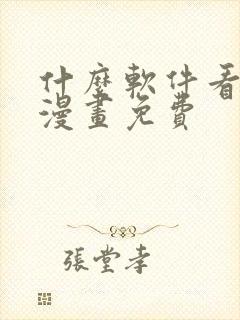 什麼軟件看
漫畫免費
張堂孝